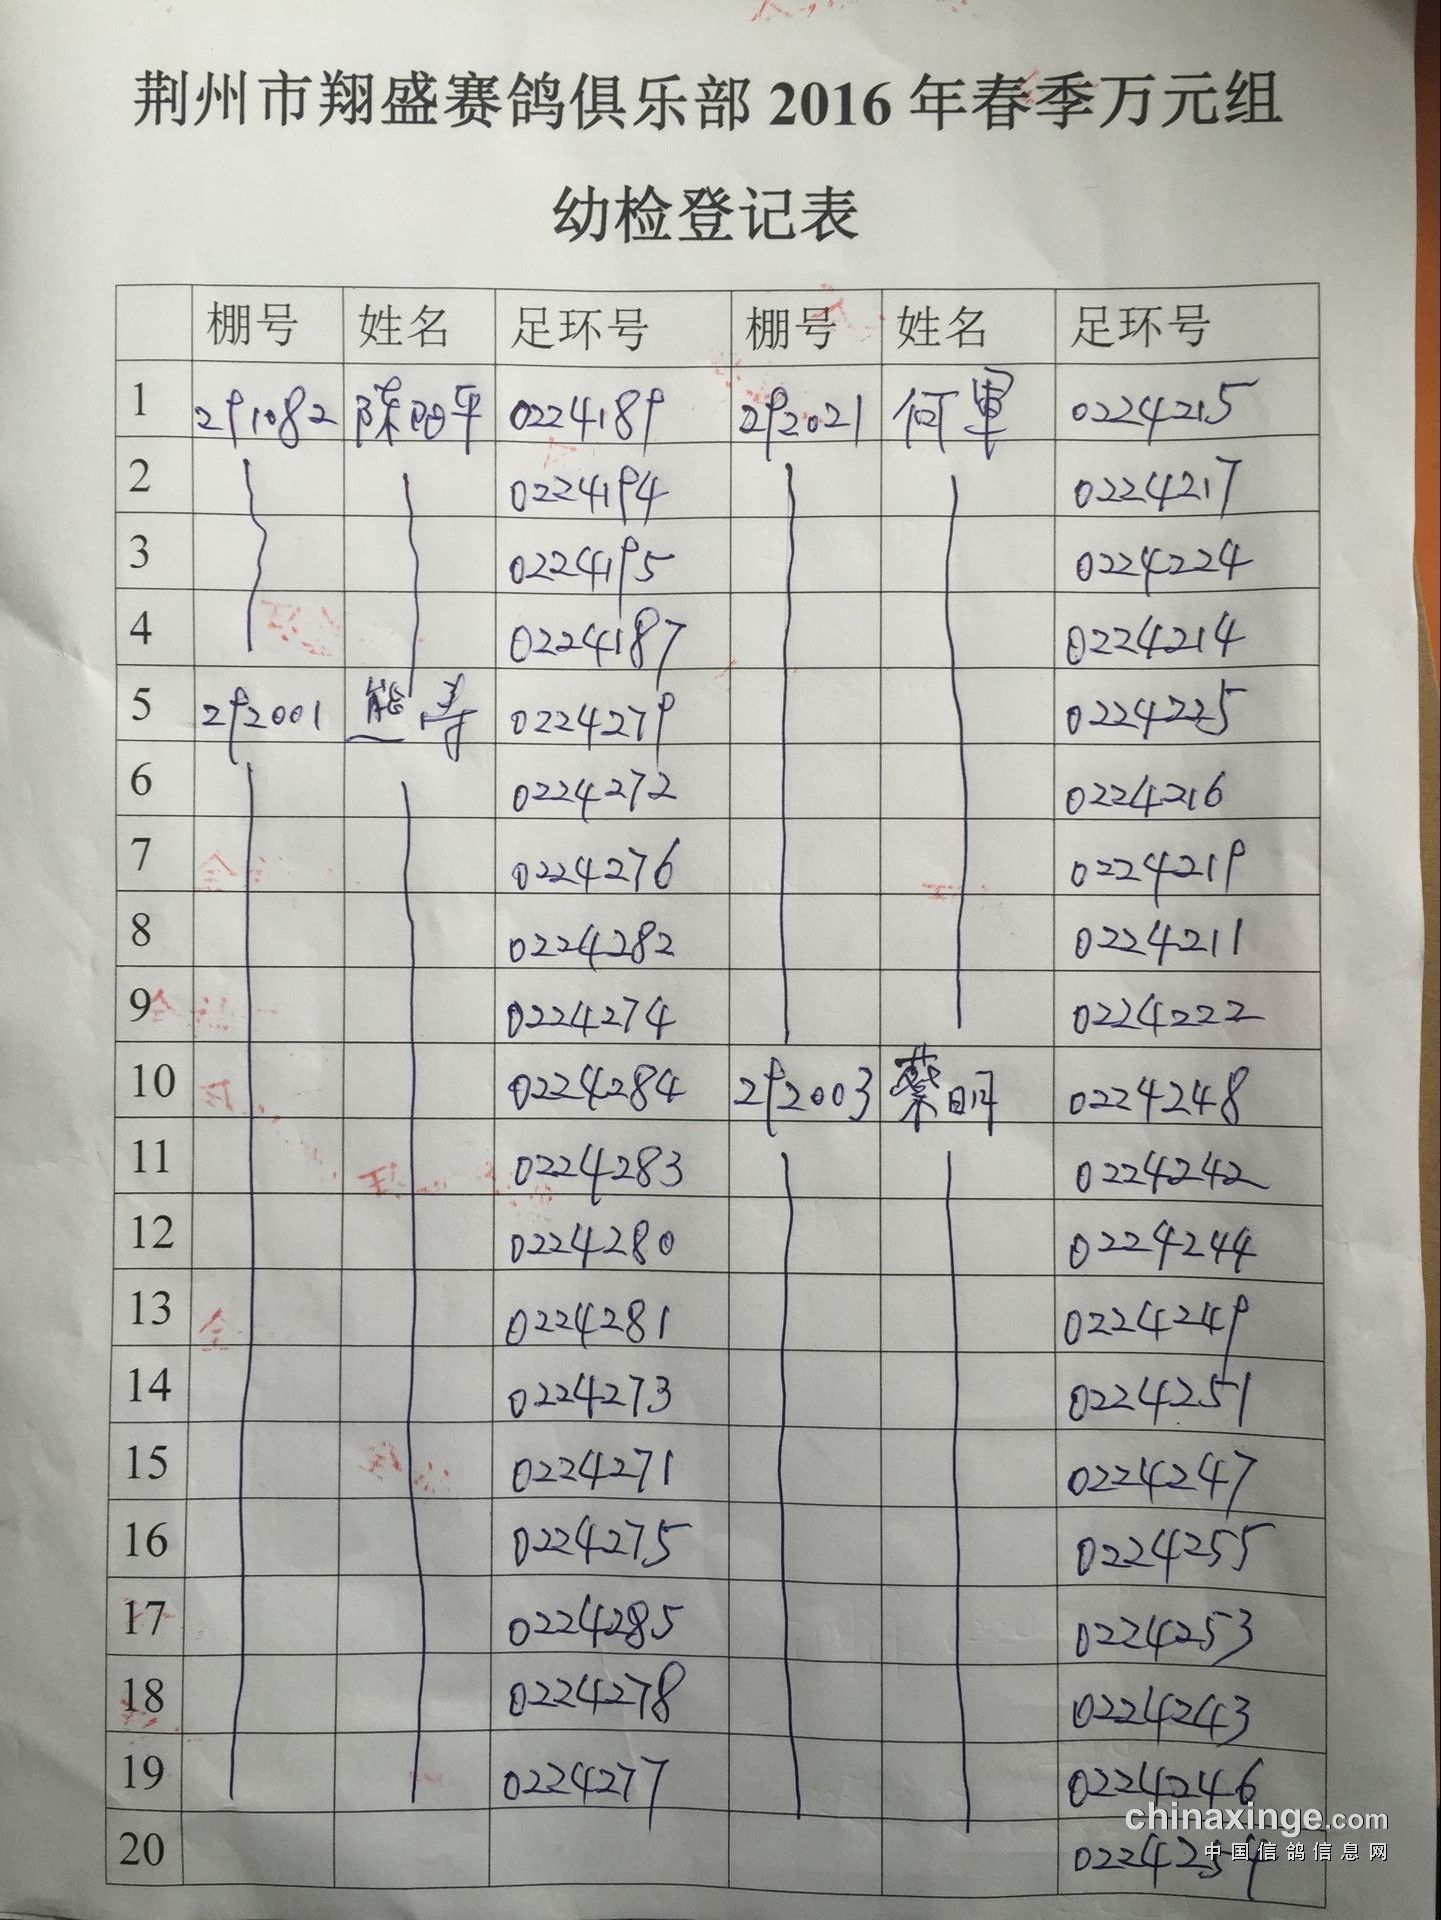 荆州市翔盛赛鸽俱乐部 2016 年春季万元组
幼检登记表
棚号 姓名 足环号 棚号 姓名 足环号
1 291082 陈阳平 0224189 292021 何軍 0224215
2 0224194 0224217
3 0224195 0224224
4 0224187 0224214
5 292001 熊寿 0224279 0224225
6 0224272 0224216
7 0224276 0224219
8 0224282 0224211
9 0224274 0224222
10 0224284 292003 蔡明 0224248
11 0224283 0224242
12 0224280 0224244
13 0224281 0224249
14 0224273 0224251
15 0224271 0224247
16 0224275 0224255
17 0224285 0224253
18 0224278 0224243
19 0224277 0224246
20 0224254
chinaxinge.com
中国信鸽信息网